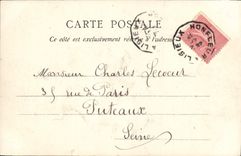 CARTE POSTALE
Ce côté est exclusivement réservé à l'adresse
HONFLEUR A LISIEUX
Monsieur Charles Lecoeur
35 rue de Paris
Puteaux
Seine